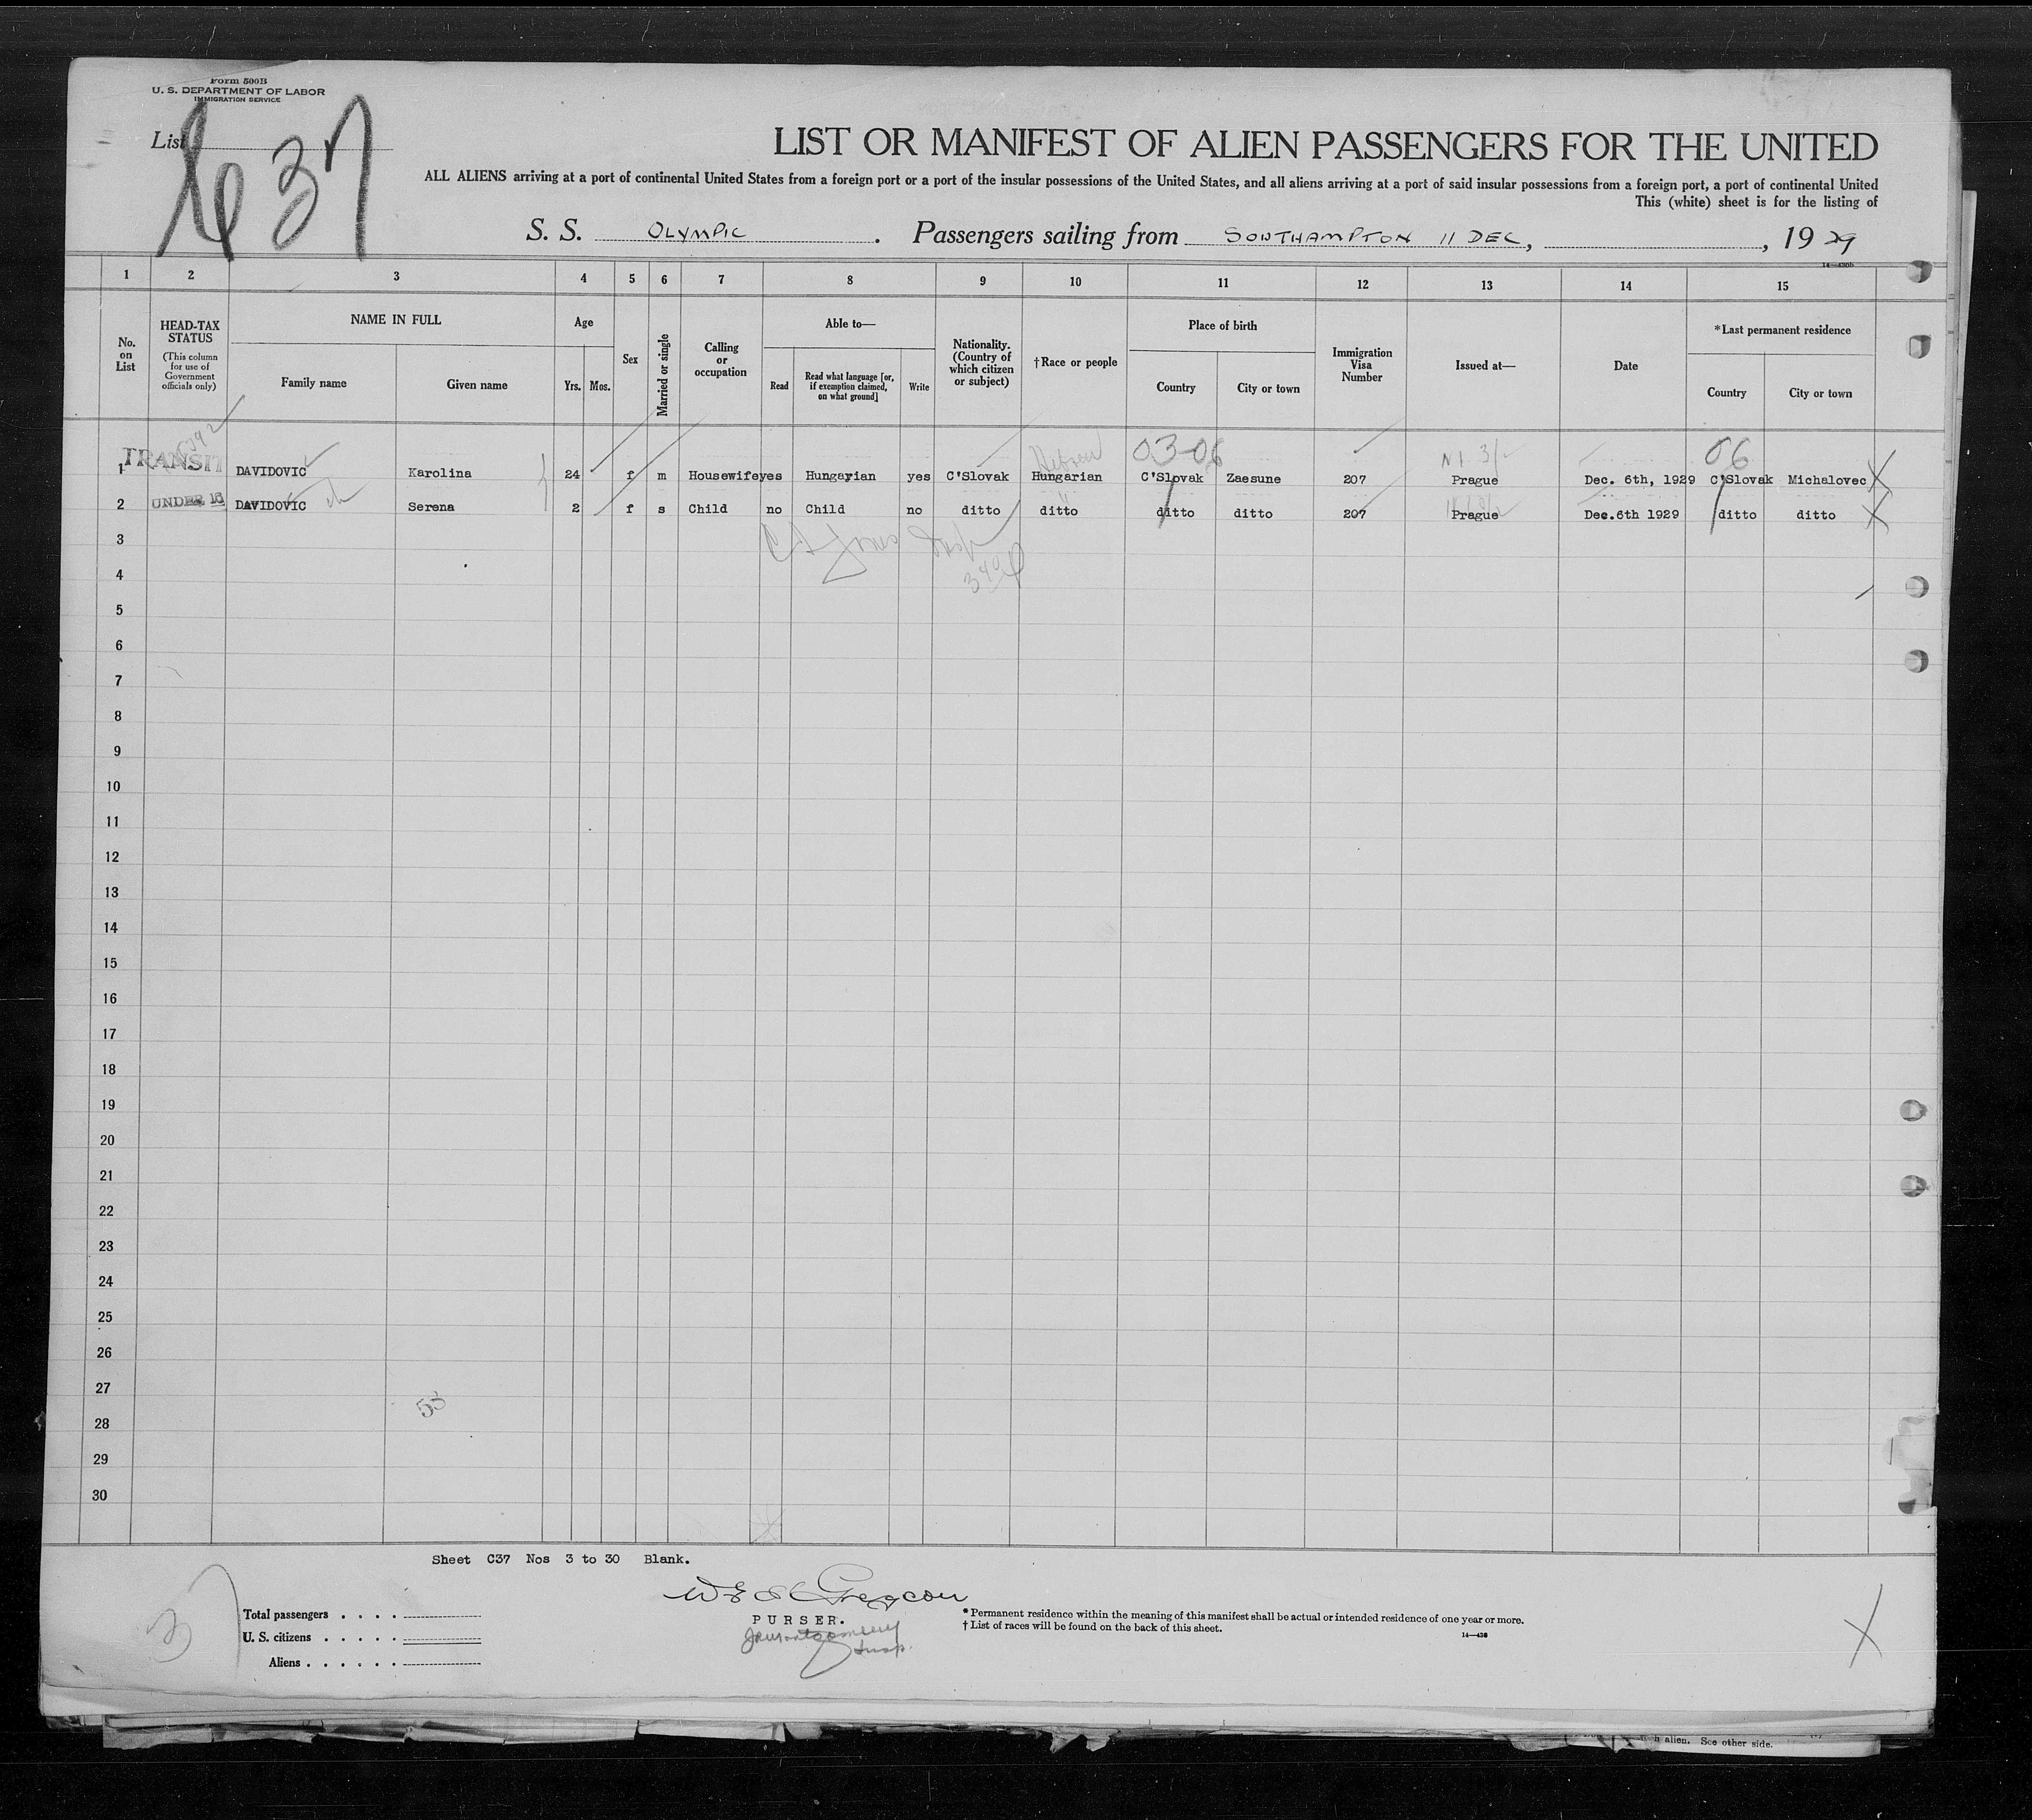 Form 500B
U. S. DEPARTMENT OF LABOR
IMMIGRATION SERVICE
List
37
LIST OR MANIFEST OF ALIEN PASSENGERS FOR THE UNITED
ALL ALIENS arriving at a port of continental United States from a foreign port or a port of the insular possessions of the United States, and all aliens arriving at a port of said insular possessions from a foreign port, a port of continental United
This (white) sheet is for the listing of
S. S. OLYMPIC . Passengers sailing from SOUTHAMPTON 11 DEC, , 1929
1 2 3 4 5 6 7 8 9 10 11 12 13 14 15
No. on List
HEAD-TAX STATUS
(This column for use of Government officials only)
NAME IN FULL
Family name Given name
Age
Yrs. Mos.
Sex
Married or single
Calling or occupation
Able to—
Read
Read what language [or, if exemption claimed, on what ground]
Write
Nationality. (Country of which citizen or subject)
†Race or people
Place of birth
Country City or town
Immigration Visa Number
Issued at—
Date
*Last permanent residence
Country City or town
Hebrew 03-06 06
1 TRANSIT DAVIDOVIC Karolina 24 f m Housewife yes Hungarian yes C'Slovak Hungarian C'Slovak Zaesune 207 Prague Dec. 6th, 1929 C'Slovak Michalovec X
2 UNDER 16 DAVIDOVIC Serena 2 f s Child no Child no ditto ditto ditto ditto 207 Prague Dec.6th 1929 ditto ditto X
3
4
5
6
7
8
9
10
11
12
13
14
15
16
17
18
19
20
21
22
23
24
25
26
27
53
28
29
30
Sheet C37 Nos 3 to 30 Blank.
PURSER.
Insp.
Total passengers . . . .
U. S. citizens . . . . .
Aliens . . . . . .
* Permanent residence within the meaning of this manifest shall be actual or intended residence of one year or more.
† List of races will be found on the back of this sheet.
14—438
X
alien. See other side.